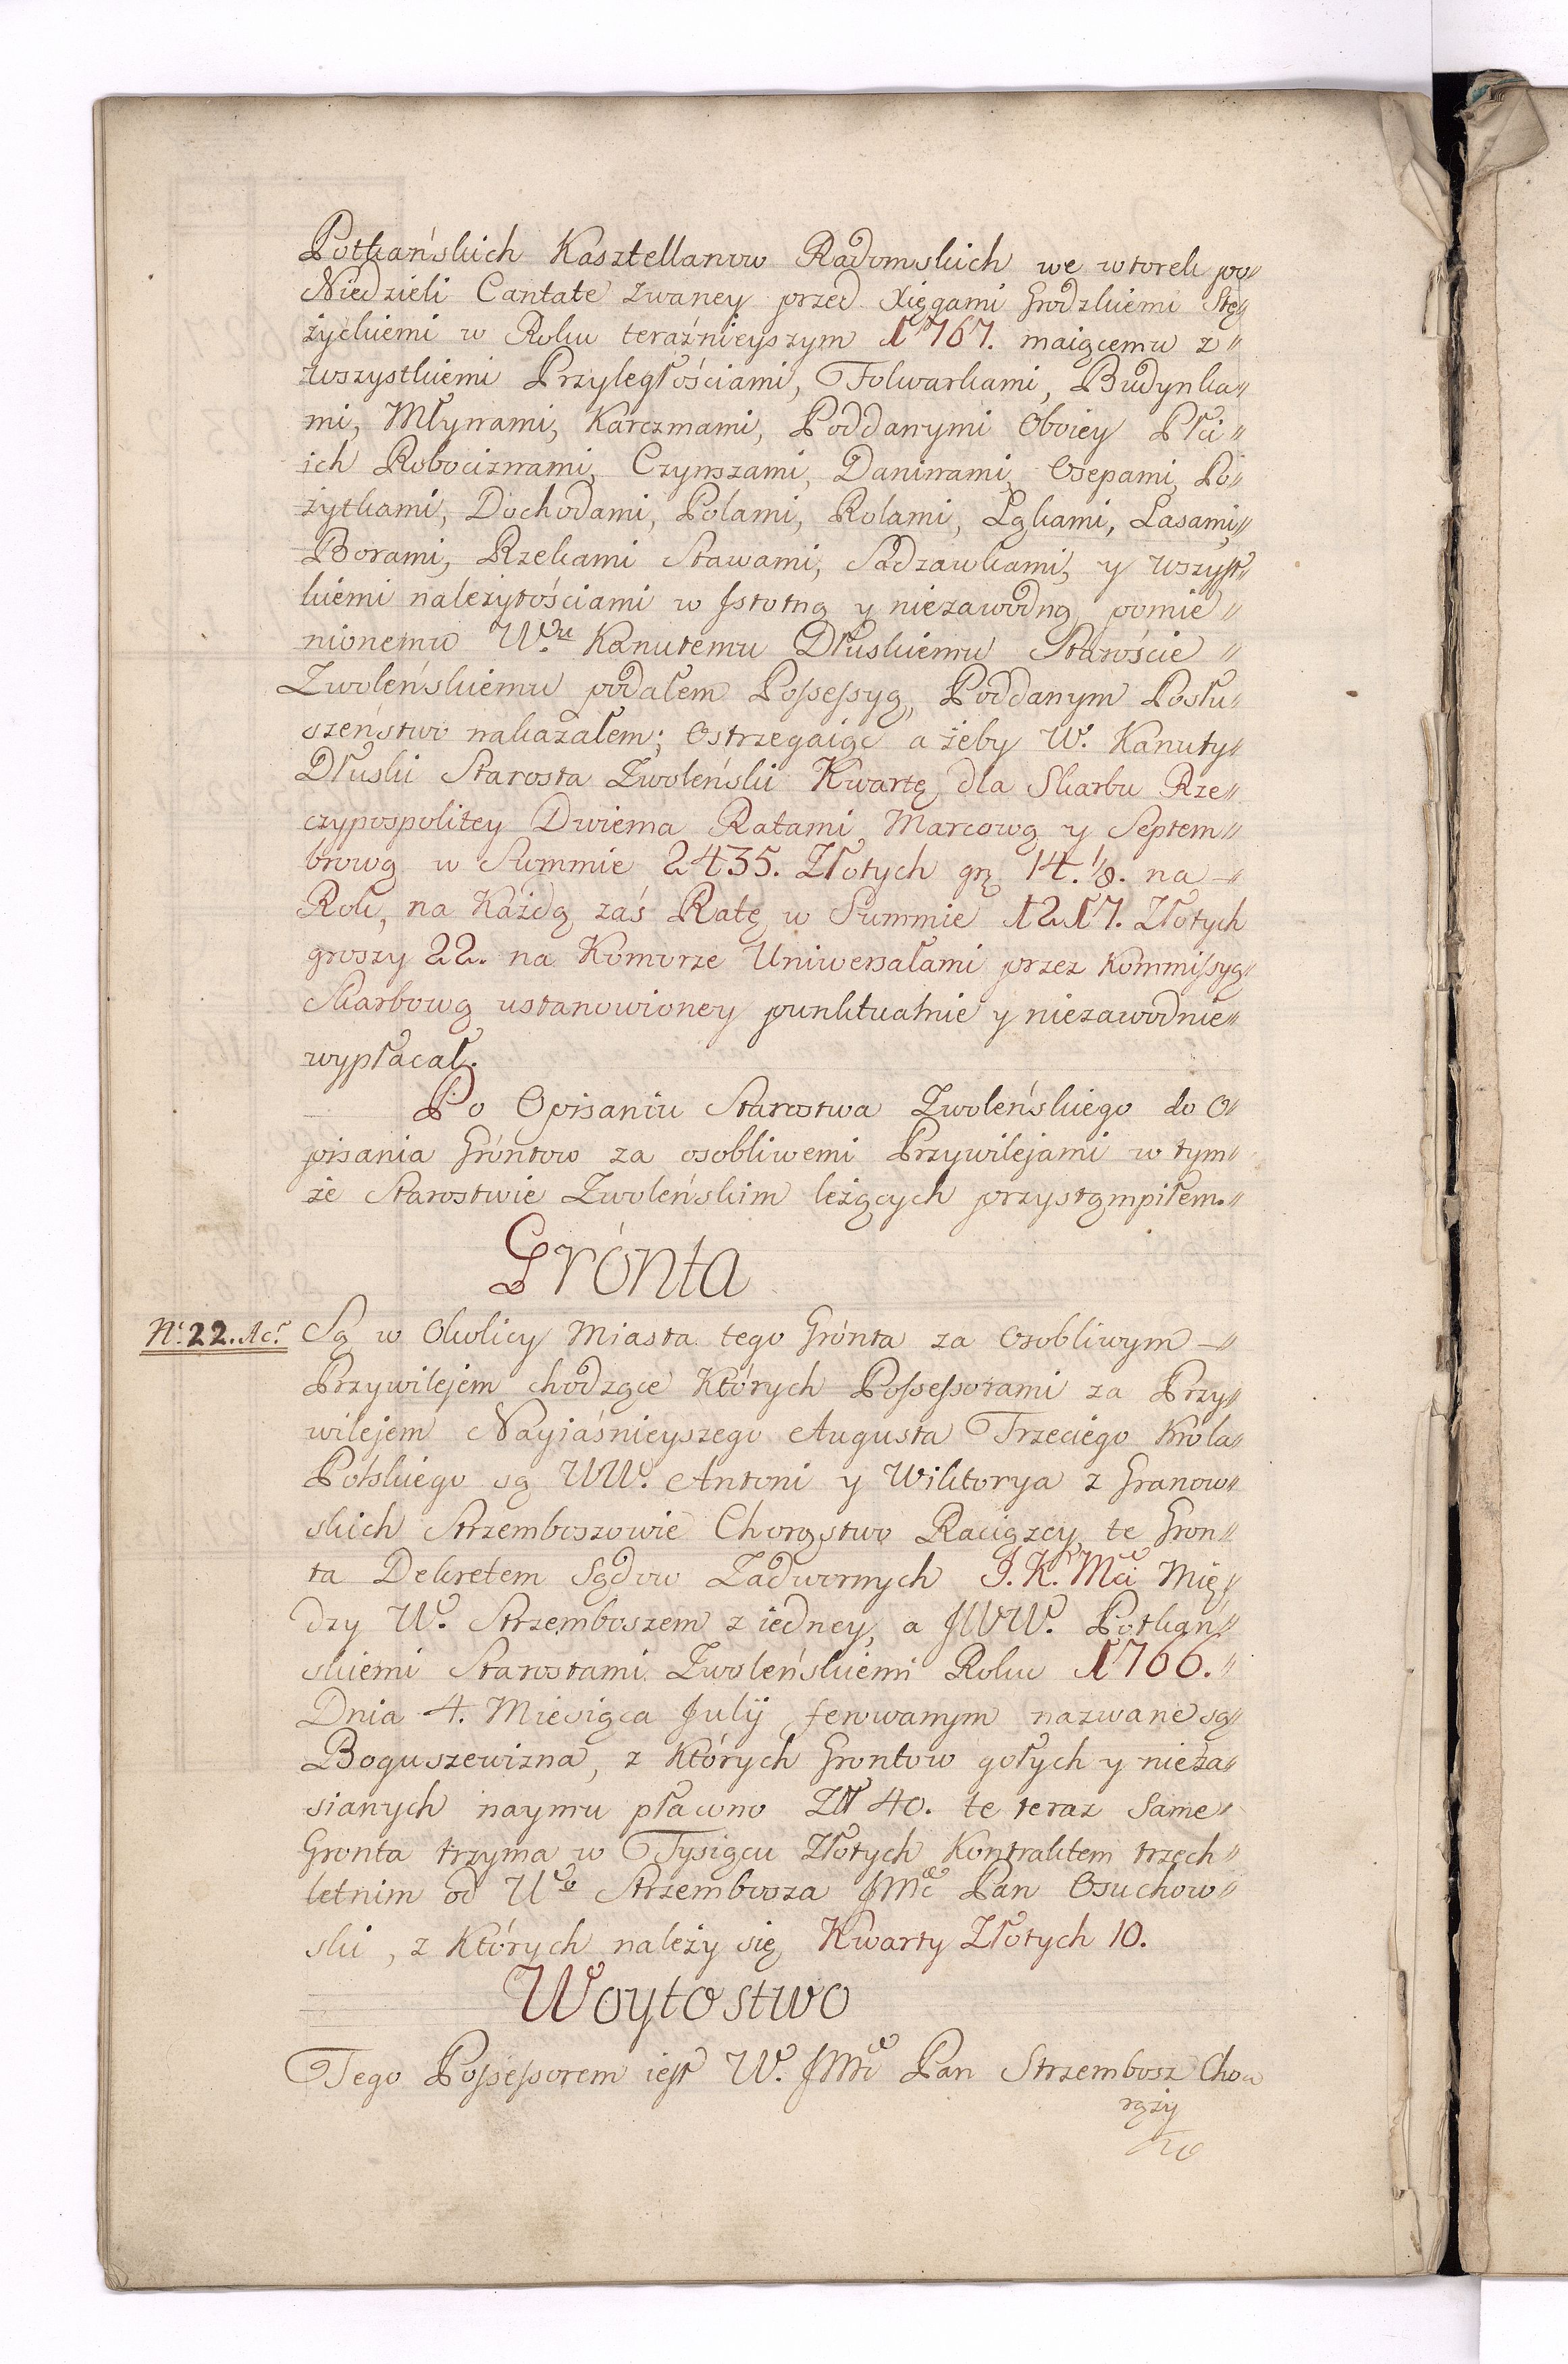 Potkańskich Kasztellanow Radomskich we wtorek po„
Niedzieli Cantate zwaney przed Xięgami Grodzkiemi Stę„
życkiemi w Roku teraźnieyszym 1767. maiącemu z„
wszystkiemi Przyległościami, Folwarkami, Budynka„
mi, Młynami, Karczmami, Poddanymi Oboiey Płci„
ich Robociznami, Czynszami, Daninami, Osepami, Po„
żytkami, Dochodami, Polami, Rolami, Łąkami, Lasami,„
Borami, Rzekami Stawami, Sadzawkami, y wszyst„
kiemi należytościami w Jstotną y niezawodną pomie„
nionemu W.mu Kanutemu Dłuskiemu Staroście„
Zwoleńskiemu podałem Possessyą, Poddanym Posłu„
szeństwo nakazałem; Ostrzegaiąc a żeby W. Kanuty„
Dłuski Starosta Zwoleński Kwartę dla Skarbu Rze„
czypospolitey Dwiema Ratami Marcową y Septem„
brową w Summie 2435. Złotych gr. 14.⅛. na„
Rok, na Każdą zaś Ratę w Summie 1217. Złotych
groszy 22. na Komorze Uniwersałami przez Kommissyą„
Skarbową ustanowioney punktualnie y niezawodnie„
wypłacał.
Po Opisaniu Starostwa Zwoleńskiego do O„
pisania Gróntow za osobliwemi Przywilejami w tym„
że Starostwie Zwoleńskim leżących przystąmpiłem.„
Grónta
Nr. 22. Acr. Są w Okolicy Miasta tego Grónta za Osobliwym„
Przywilejem chodzące Których Possessorami za Przy„
wilejem Nayiaśnieyszego Augusta Trzeciego Krola„
Polskiego są WW. Antoni y Wiktorya z Granow„
skich Strzemboszowie Chorąstwo Raciązcy te Gron„
ta Dekretem Sądow Zadwornych J. K. Mci Mię„
dzy W. Strzemboszem z iedney, a JWW. Potkań„
skiemi Starostami Zwoleńskiemi Roku 1766.„
Dnia 4. Miesiąca Julij ferowanym nazwane są„
Boguszewizna, z Których Grontow gołych y nieza„
sianych naymu płacono Zł 40. te teraz same„
Gronta trzyma w Tysiącu Złotych Kontraktem trzech„
letnim od Wo Strzembosza JMć Pan Osuchow„
ski, z Których należy się Kwarty Złotych 10.
Woytostwo
Tego Possessorem iest W. JMć Pan Strzembosz Cho„
rąży